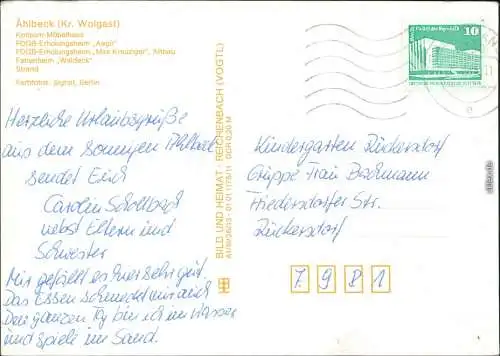 Ahlbeck (Kr. Wolgast)
Konsum-Möbelhaus
FDGB-Erholungsheim „Aegir"
FDGB-Erholungsheim „Max Kreuziger", Altbau
Ferienheim „Waldeck"
Strand
Farbfotos: Bignat, Berlin
Herzliche Urlaubsgrüße
aus dem sonnigen Ahlbeck
sendet Euch
Carolin
nebst Eltern und
Schwester
Mir gefällt es hier sehr gut.
Das Essen schmeckt mir auch
Den ganzen Tag bin ich im Wasser
und spiele im Sand.
BILD UND HEIMAT · REICHENBACH (VOGTL)
DDR 0,20 M
10
Kindergarten Rückersdorf
Gruppe Frau Bachmann
Friedersdorfer Str.
Rückersdorf
7 9 8 1